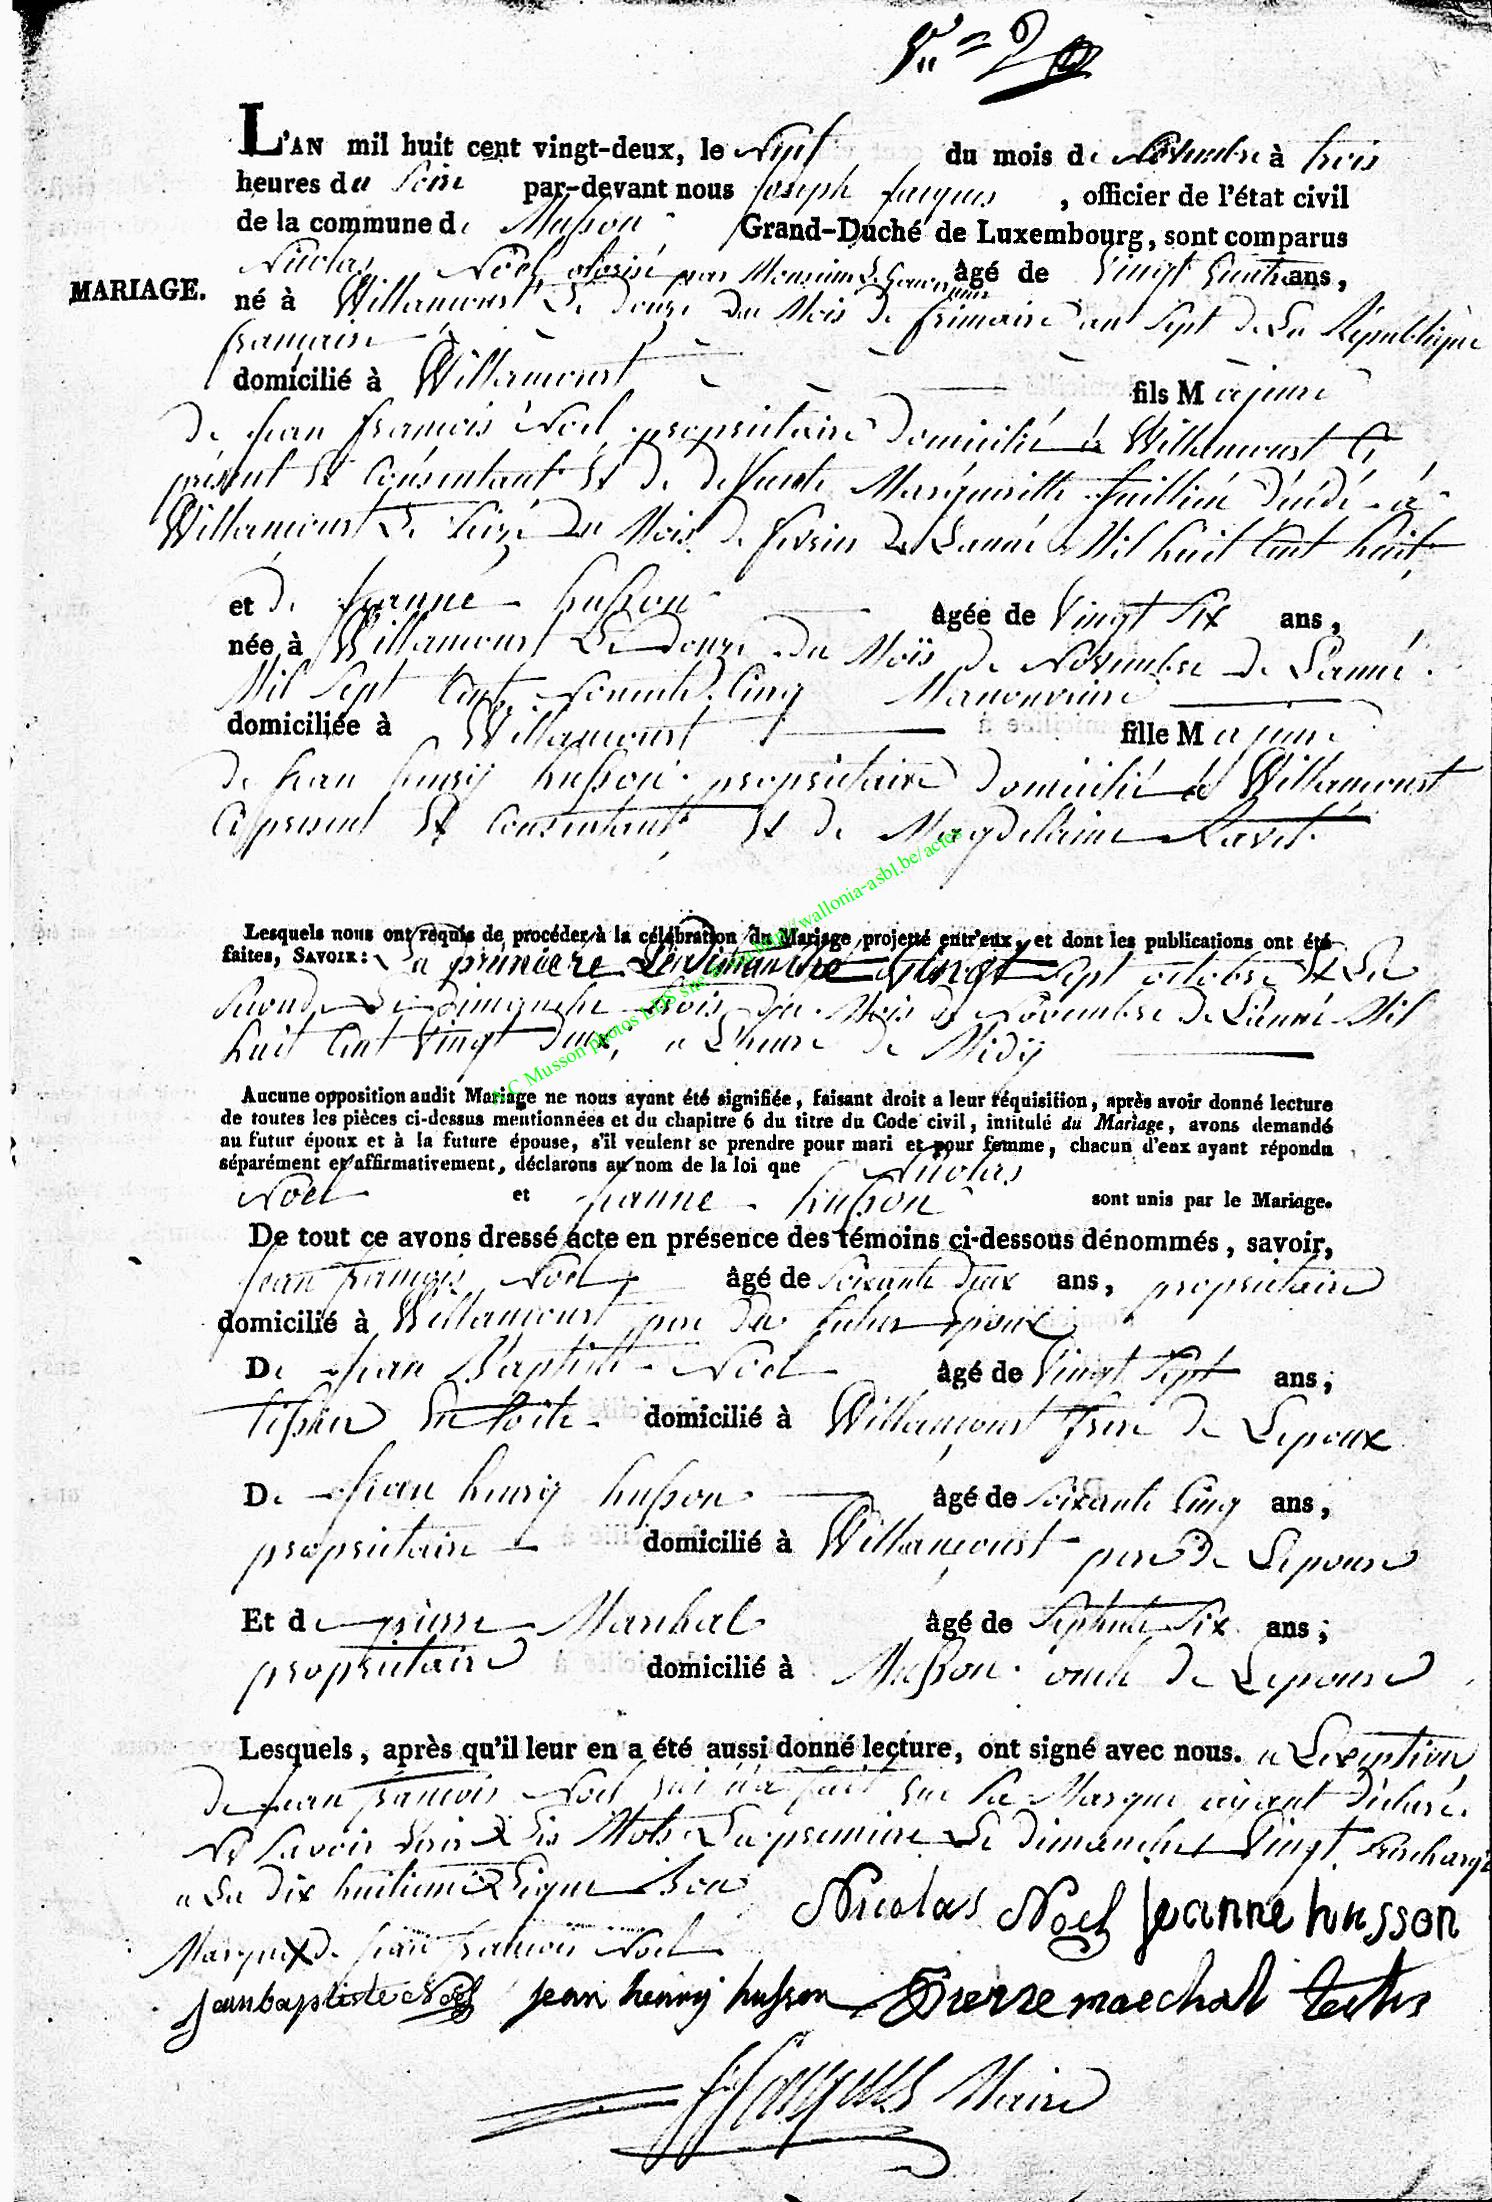 L'AN mil huit cent vingt-deux, le Sept du mois de Novembre à trois
heures du Soir par-devant nous Joseph Jacques, officier de l'état civil
de la commune de Musson Grand-Duché de Luxembourg, sont comparus
MARIAGE.
Nicolas Noël par Monsieur Le âgé de Vingt ans,
né à Willancourt Le douze Du Mois de frimaire an Sept de La République
française
domicilié à Willancourt fils Majeure
de Jean francois Noël propriétaire Domicilié à Willancourt Ci
présent Et Consentant Et De deffunte Margueritte décédé à
Willancourt Le Seize Du Mois de fevrier De L'année Mil huit Cent huit
et de Jeanne husson âgée de Vingt Six ans,
née à Willancourt Le Douze du Mois de Novembre de L'année
Mil Sept Cent Nonente Cinq Manouvriere
domiciliée à Willancourt fille Majeure
de Jean henry husson propriétaire Domicilié à Willancourt
Ci présent Et Consentant Et de Magdelaine Ravet
Lesquels nous ont requis de procéder à la célébration du Mariage projetté entr'eux, et dont les publications ont été
faites, SAVOIR: La première Le Dimanche Vingt Sept octobre Et La
Seconde Le Dimanche trois du Mois de Novembre de L'année Mil
huit Cent Vingt Deux, a L'heure de Midy
Aucune opposition audit Mariage ne nous ayant été signifiée, faisant droit a leur réquisition, après avoir donné lecture
de toutes les pièces ci-dessus mentionnées et du chapitre 6 du titre du Code civil, intitulé du Mariage, avons demandé
au futur époux et à la future épouse, s'il veulent se prendre pour mari et pour femme, chacun d'eux ayant répondu
séparément et affirmativement, déclarons au nom de la loi que Nicolas
Noël et Jeanne husson sont unis par le Mariage.
De tout ce avons dressé acte en présence des témoins ci-dessous dénommés, savoir,
Jean francois Noël âgé de Soixante Deux ans, propriétaire
domicilié à Willancourt pere du futur Epoux
De Jean Baptiste Noël âgé de Vingt Sept ans;
tisseur En toile domicilié à Willancourt frere de L'epoux
De Jean henry husson âgé de Soixante Cinq ans,
propriétaire domicilié à Willancourt pere de L'epouse
Et de pierre Marchal âgé de Septente Six ans;
propriétaire domicilié à Musson oncle de L'epouse
Lesquels, après qu'il leur en a été aussi donné lecture, ont signé avec nous. a L'exception
de Jean francois Noël qui n'a fait que Sa Marque ayant déclaré
Ne Savoir Les Mots La premiere Le dimanche Vingt Surchargé
a La Dix huitieme Ligne Bon
Nicolas Noël Jeanne husson
Marque X de Jean francois Noël
jean baptiste Noël jean henry husson Pierre maechal
Jacques Maire
A.C Musson photos LDS site wallonia-asbl.be/actes